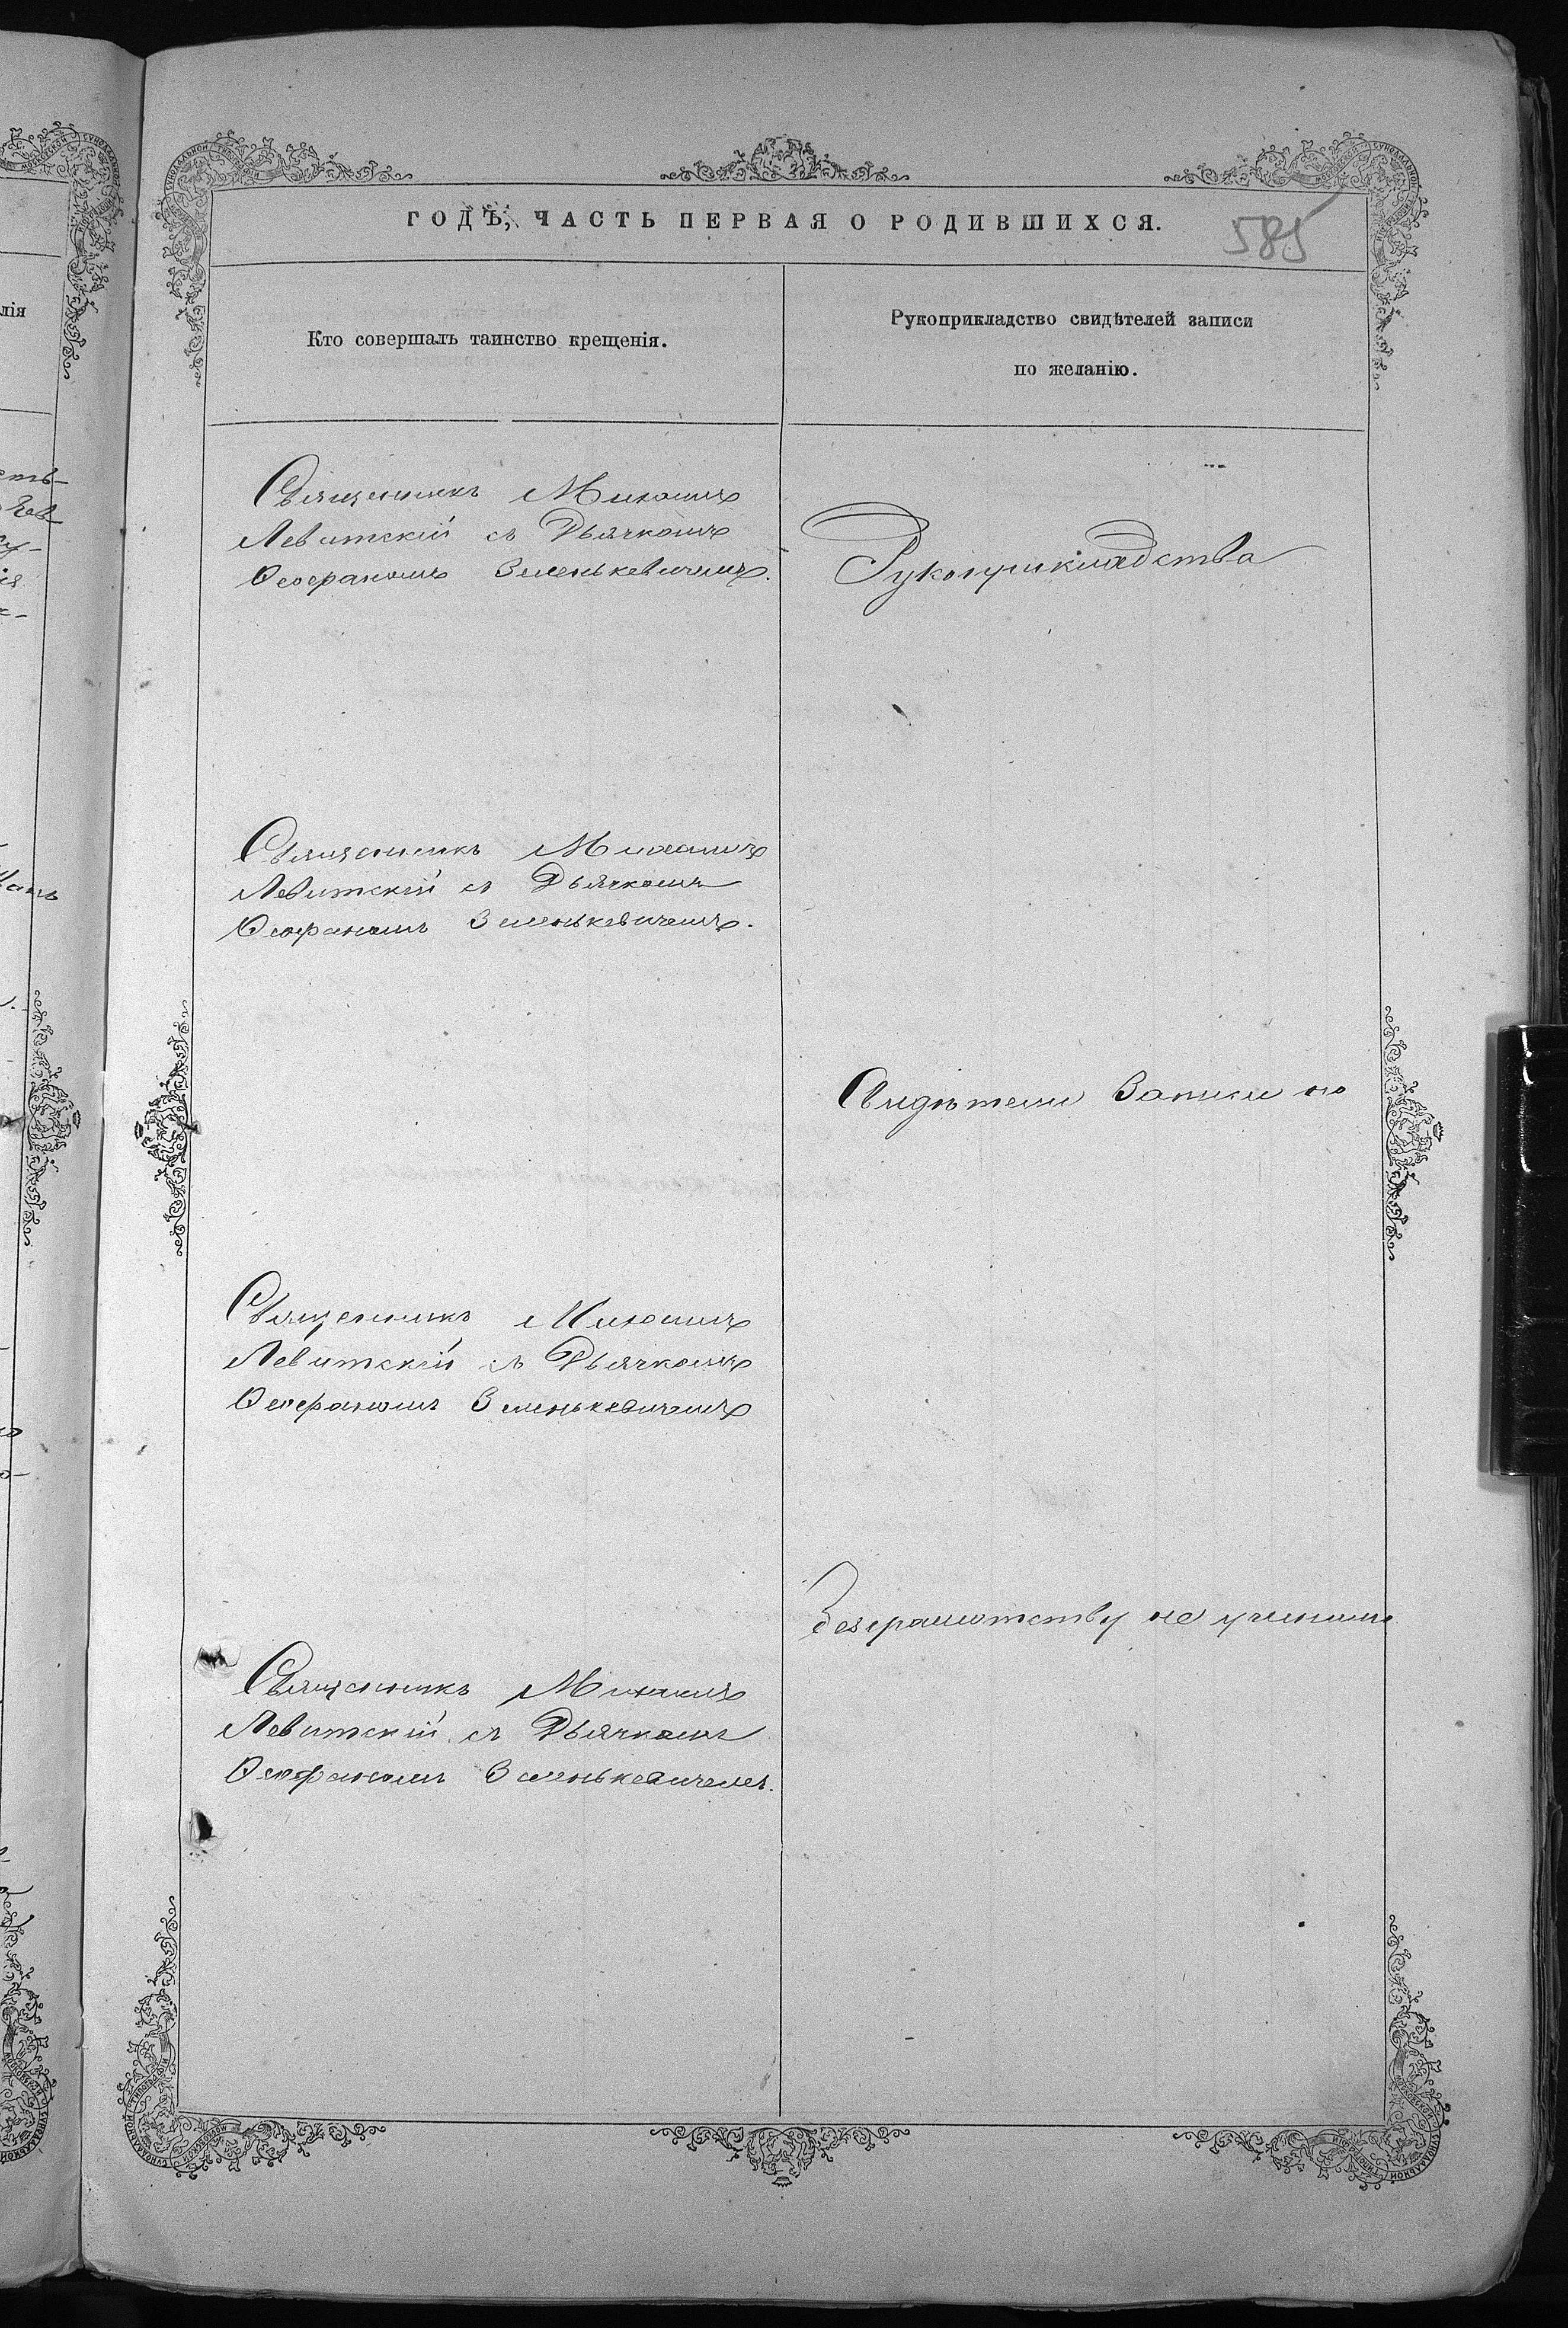 ГОДЪ, ЧАСТЬ ПЕРВАЯ О РОДИВШИХСЯ.
585
Кто совершалъ таинство крещенія.
Рукоприкладство свидѣтелей записи
по желанію.
Священникъ Михаилъ
Левитскій съ Дьячкомъ
Ѳеофаномъ Зиленькевичемъ.
Рукоприкладства
Священникъ Михаилъ
Левитскій съ Дьячкомъ
Ѳеофаномъ Зиленькевичемъ.
Свидѣтели Записи по
Священникъ Михаилъ
Левитскій съ Дьячкомъ
Ѳеофаномъ Зиленькевичемъ
безграмотству не учинили
Священникъ Михаилъ
Левитскій съ Дьячкомъ
Ѳеофаномъ Зиленькевичемъ.